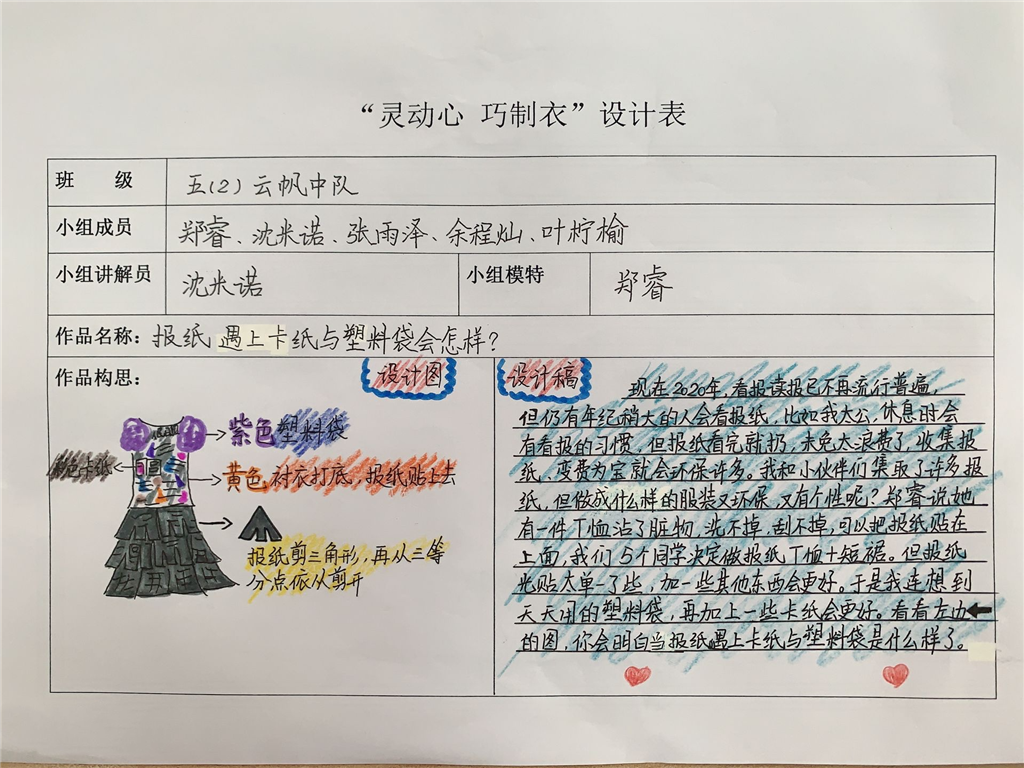 “灵动心 巧制衣”设计表
班 级 五(2)云帆中队
小组成员 郑睿、沈米诺、张雨泽、余程灿、叶柠榆
小组讲解员 沈米诺 小组模特 郑睿
作品名称：报纸遇上卡纸与塑料袋会怎样？
作品构思：
设计图
紫色塑料袋
色卡纸
黄色衬衣打底，报纸贴上去
报纸剪三角形，再从三等
分点依从剪开
设计稿
现在2020年，看报读报已不再流行普遍，
但仍有年纪稍大的人会看报纸，比如我大公，休息时会
有看报的习惯，但报纸看完就扔，未免太浪费了，收集报
纸、变费为宝就会环保许多。我和小伙伴们集取了许多报
纸，但做成什么样的服装又环保，又有个性呢？郑睿说她
有一件T恤沾了脏物，洗不掉，刮不掉，可以把报纸贴在
上面，我们5个同学决定做报纸T恤+短裾。但报纸
光贴太单一了些，加一些其他东西会更好。于是我连想到
天天用的塑料袋，再加上一些卡纸会更好。看看左边
的图，你会明白当报纸遇上卡纸与塑料袋是什么样了。